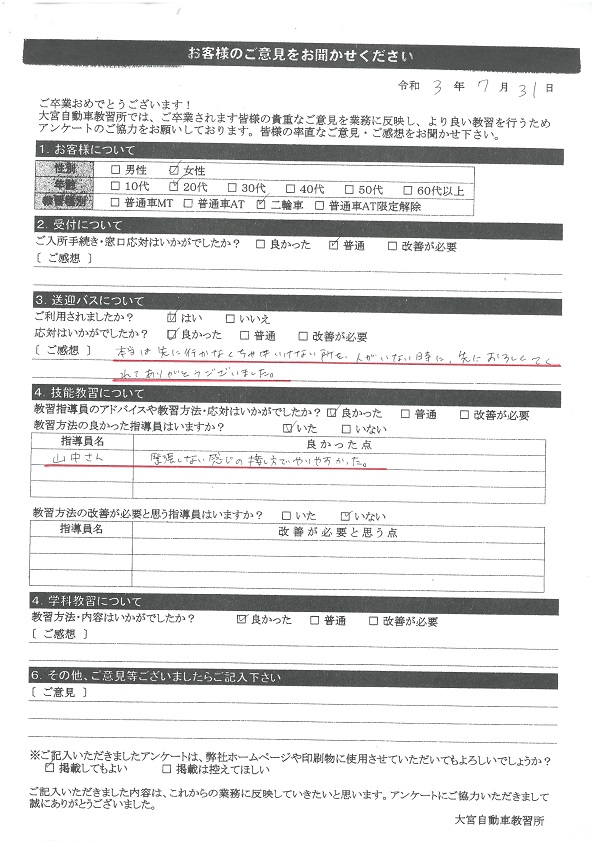 お客様のご意見をお聞かせください
令和 3 年 7 月 31 日
ご卒業おめでとうございます！
大宮自動車教習所では、ご卒業されます皆様の貴重なご意見を業務に反映し、より良い教習を行うため
アンケートのご協力をお願いしております。皆様の率直なご意見・ご感想をお聞かせ下さい。
1. お客様について
性別 □ 男性 ☑ 女性
年齢 □ 10代 ☑ 20代 □ 30代 □ 40代 □ 50代 □ 60代以上
教習種別 □ 普通車MT □ 普通車AT ☑ 二輪車 □ 普通車AT限定解除
2. 受付について
ご入所手続き・窓口応対はいかがでしたか？ □ 良かった ☑ 普通 □ 改善が必要
〔 ご感想 〕
3. 送迎バスについて
ご利用されましたか？ ☑ はい □ いいえ
応対はいかがでしたか？ ☑ 良かった □ 普通 □ 改善が必要
〔 ご感想 〕 本当は先に行かなくちゃいけない所を、人がいない時に、先におろしてく
れてありがとうございました。
4. 技能教習について
教習指導員のアドバイスや教習方法・応対はいかがでしたか？ ☑ 良かった □ 普通 □ 改善が必要
教習方法の良かった指導員はいますか？ ☑ いた □ いない
指導員名 良かった点
山中さん 緊張しない感じの接し方でやりやすかった。
教習方法の改善が必要と思う指導員はいますか？ □ いた ☑ いない
指導員名 改善が必要と思う点
4. 学科教習について
教習方法・内容はいかがでしたか？ ☑ 良かった □ 普通 □ 改善が必要
〔 ご感想 〕
6. その他、ご意見等ございましたらご記入下さい
〔 ご意見 〕
※ご記入いただきましたアンケートは、弊社ホームページや印刷物に使用させていただいてもよろしいでしょうか？
☑ 掲載してもよい □ 掲載は控えてほしい
ご記入いただきました内容は、これからの業務に反映していきたいと思います。アンケートにご協力いただきまして
誠にありがとうございました。
大宮自動車教習所